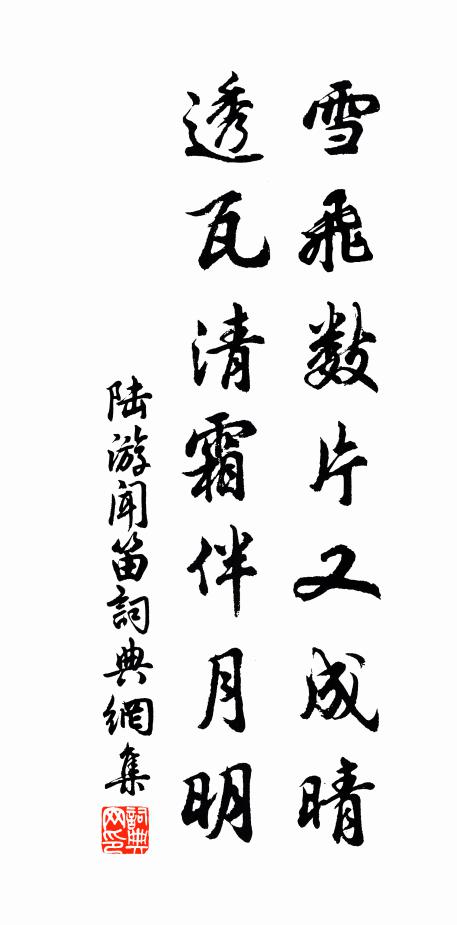 雪飛數片又成晴
透瓦清霜伴月明
陸游聞笛詞典網集
詞典网印